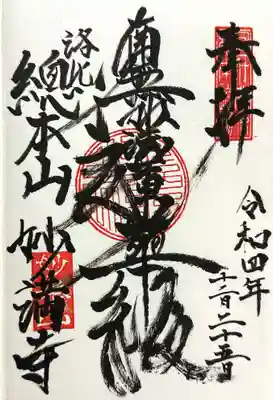 奉拝
令和四年
十二月二十五日
南無妙法蓮華経
洛北
總本山
妙満寺